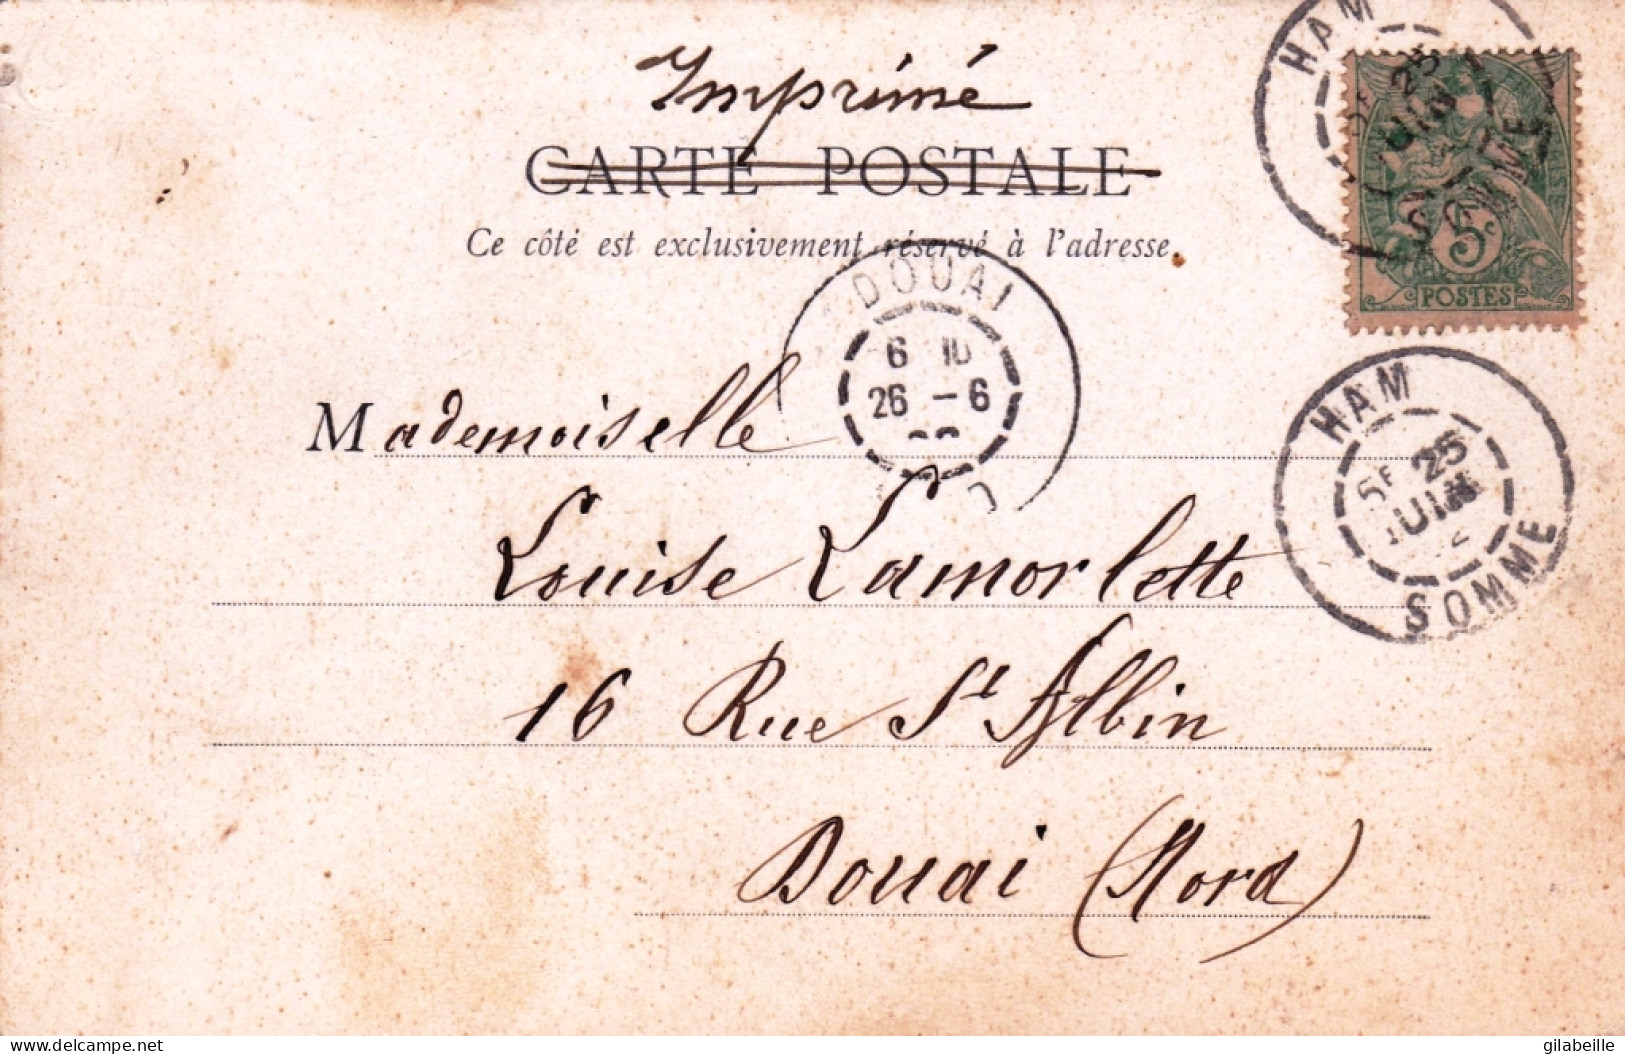 Imprimé
CARTE POSTALE
Ce côté est exclusivement réservé à l'adresse.
HAM
25
JUIN
SOMME
5c
POSTES
DOUAI
6
26 - 6
Mademoiselle
HAM
5E 25
JUIN
2
SOMME
Louise Lamorlette
16 Rue St Albin
Douai (Nord)
delcampe.net
gilabeille